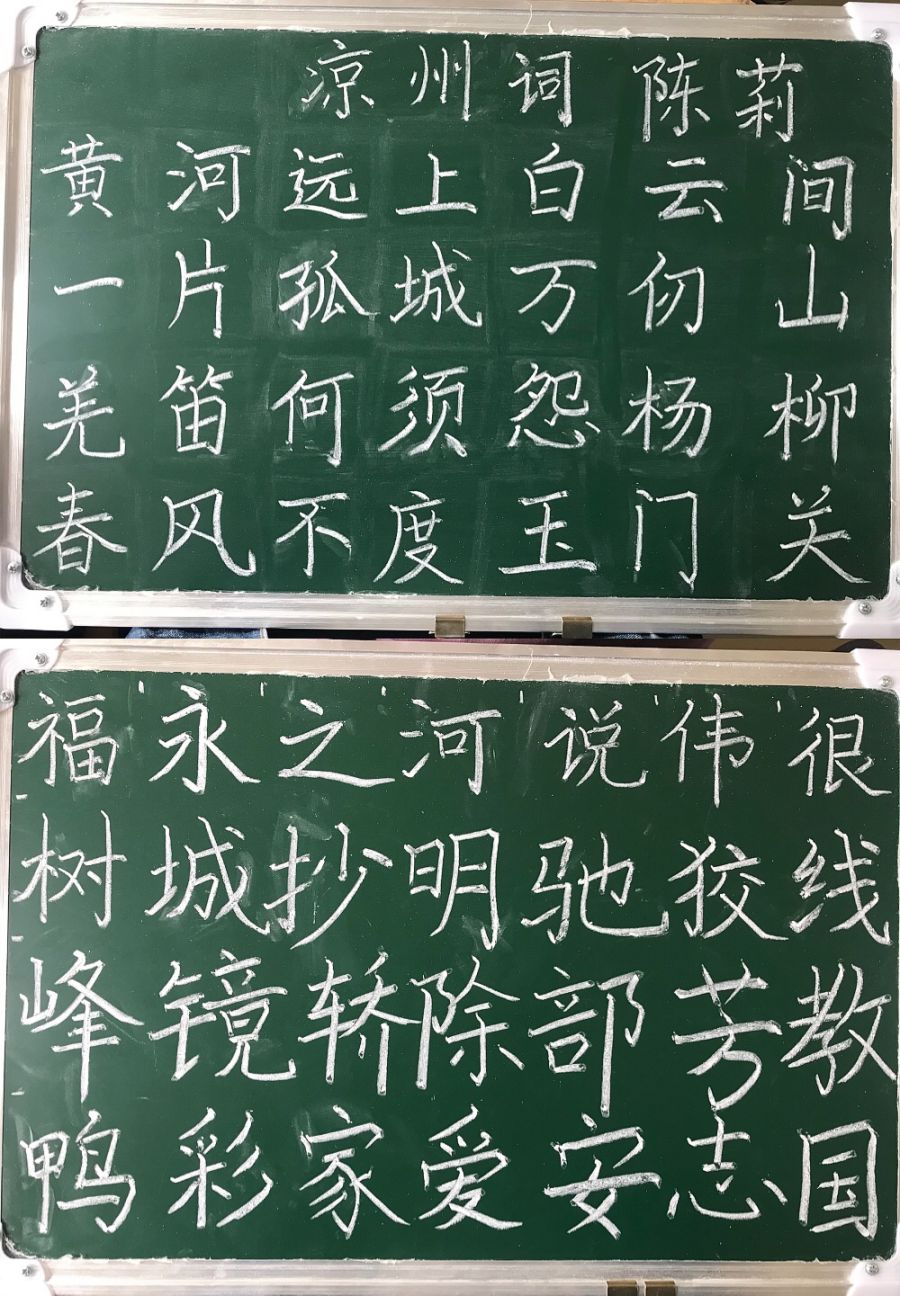 凉州词 陈莉
黄河远上白云间
一片孤城万仞山
羌笛何须怨杨柳
春风不度玉门关
福永之河说伟很
树城抄明驰狡线
峰镜轿除部芳教
鸭彩家爱安志国